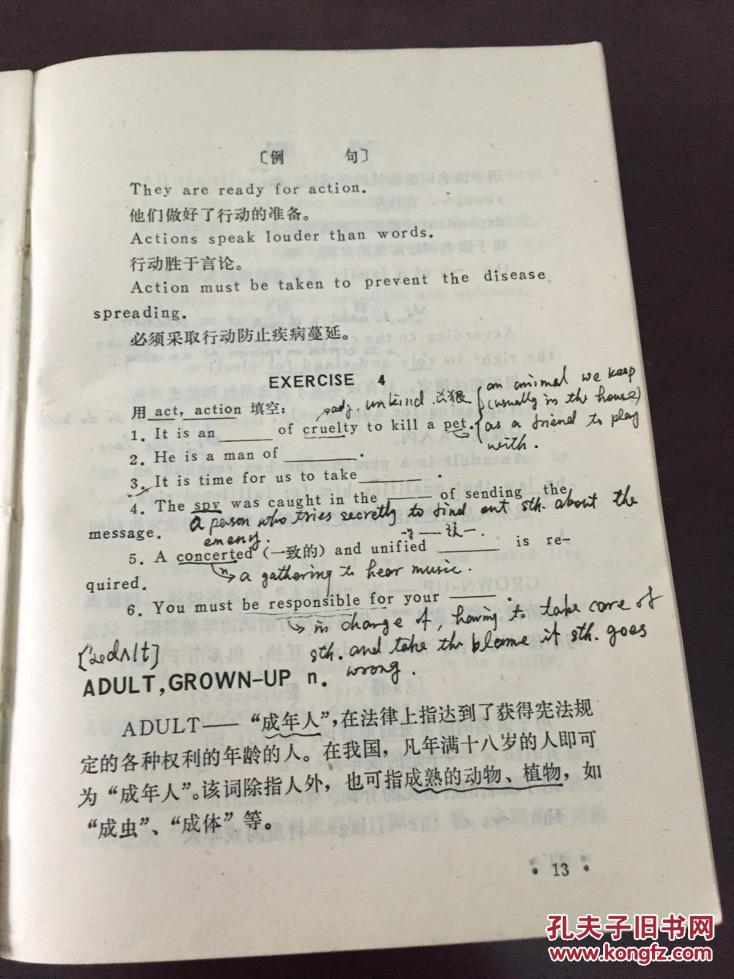 〔例 句〕
They are ready for action.
他们做好了行动的准备。
Actions speak louder than words.
行动胜于言论。
Action must be taken to prevent the disease
spreading.
必须采取行动防止疾病蔓延。
EXERCISE 4
用 act, action 填空:
adj. unkind
an animal we keep
(usually in the house)
as a friend to play
with.
1. It is an ______ of cruelty to kill a pet.
2. He is a man of ________.
3. It is time for us to take_______ .
4. The spy was caught in the _____ of sending the
message. a person who tries secretly to find out sth. about the
enemy.
5. A concerted (一致的) and unified _______ is re-
quired. a gathering to hear music.
6. You must be responsible for your _____ .
in charge of, having to take care of
sth. and take the blame if sth. goes
wrong.
['ædʌlt]
ADULT, GROWN-UP n.
ADULT—— “成年人”,在法律上指达到了获得宪法规
定的各种权利的年龄的人。在我国，凡年满十八岁的人即可
为“成年人”。该词除指人外，也可指成熟的动物、植物，如
“成虫”、“成体”等。
• 13 •
孔夫子旧书网
www.kongfz.com